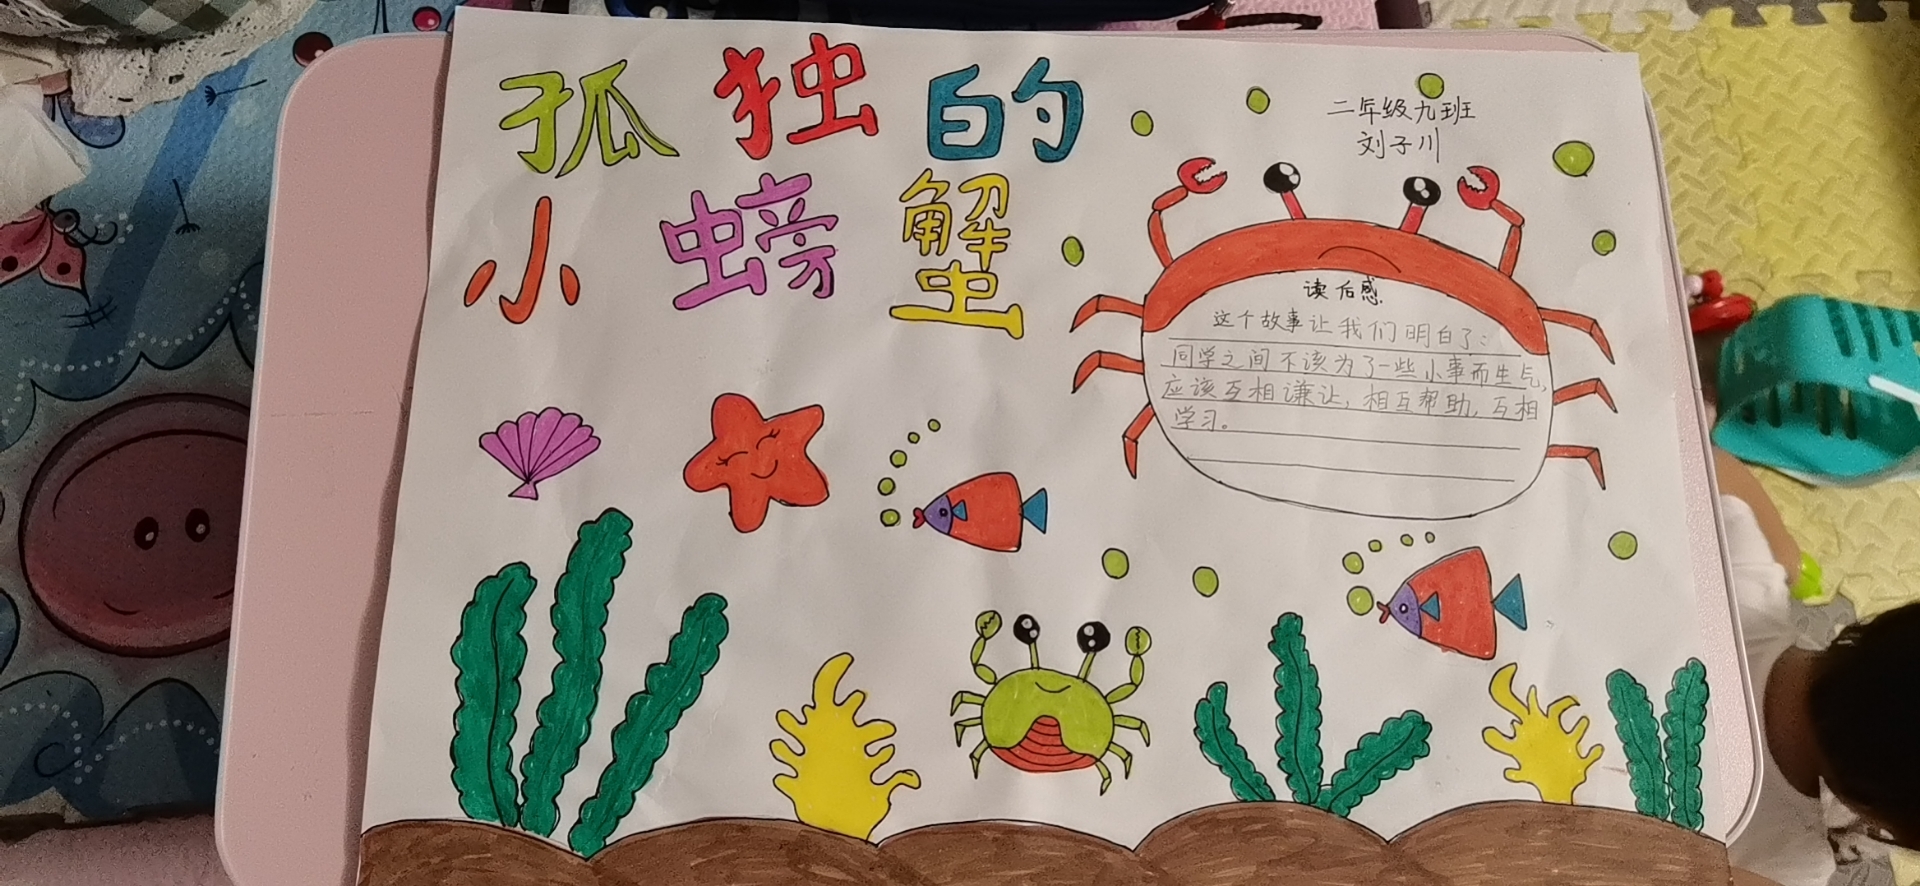 孤独的
小螃蟹
二年级九班
刘子川
读后感
这个故事让我们明白了：
同学之间不该为了一些小事而生气，
应该互相谦让，相互帮助，互相
学习。